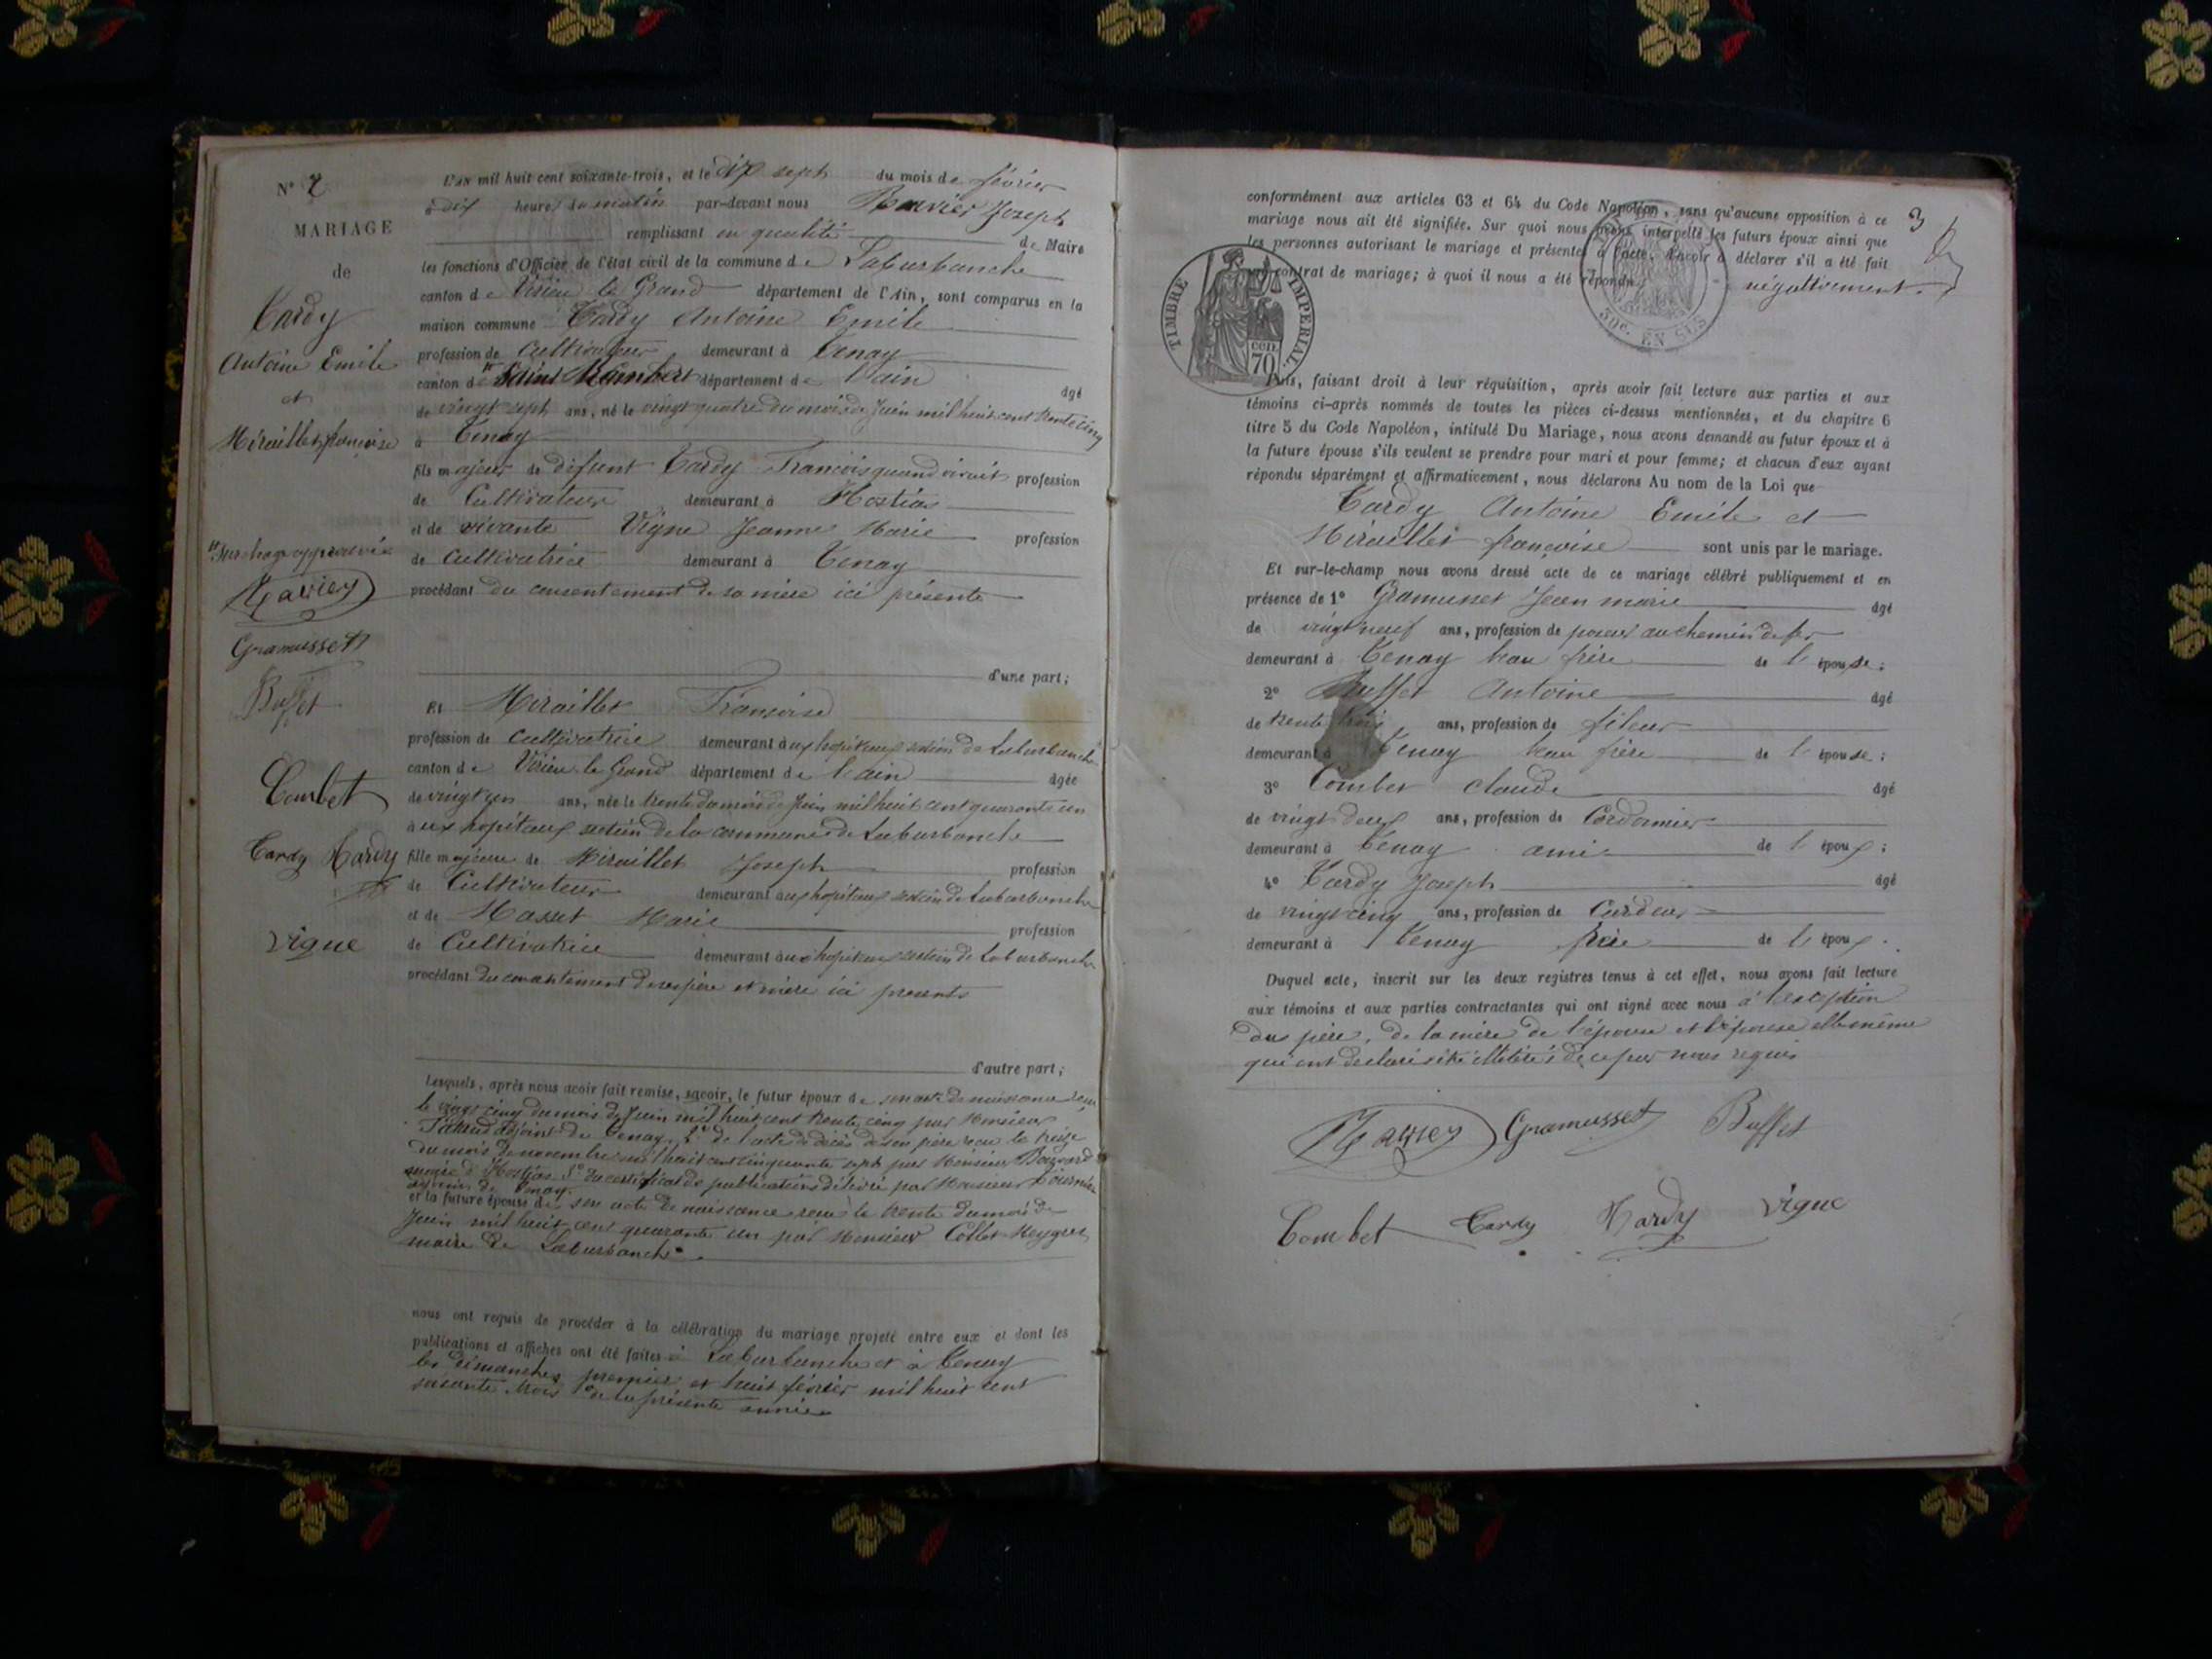 N° 2
MARIAGE
de
Tardy
Antoine Emile
et
Miraillet françoise
surcharge approuvée
Gramusset
Buffet
Combet
Tardy Tardy
Vigne
L'AN mil huit cent soixante-trois, et le dix sept du mois de février
à dix heures du matin par-devant nous Joseph
remplissant en qualité de Maire
les fonctions d'Officier de l'état civil de la commune de Laburbanche
canton de Virieu le Grand département de l'Ain, sont comparus en la
maison commune Tardy Antoine Emile
profession de Cultivateur demeurant à Tenay
canton de Saint Rambert département de l'ain âgé
de vingt sept ans, né le vingt quatre du mois de Juin mil huit cent trente cinq
à Tenay
fils majeur de défunt Tardy François quand vivait profession
de Cultivateur demeurant à Hostias
et de vivante Vigne Jeanne Marie profession
de Cultivatrice demeurant à Tenay
procédant du consentement de sa mère ici présente
d'une part;
Et Miraillet Françoise
profession de Cultivatrice demeurant aux hopitaux section de Laburbanche
canton de Virieu le Grand département de l'ain âgée
de vingt un ans, née le trente du mois de Juin mil huit cent quarante un
aux hopitaux section de la commune de Laburbanche
fille majeure de Miraillet Joseph profession
de Cultivateur demeurant aux hopitaux section de Laburbanche
et de Masset Marie profession
de Cultivatrice demeurant aux hopitaux section de Laburbanche
procédant du consentement de ses père et mère ici présents
d'autre part;
Lesquels, après nous avoir fait remise, savoir, le futur époux de son acte de naissance
le vingt cinq du mois de Juin mil huit cent trente cinq par Monsieur
adjoint de Tenay, 2° de l'acte de décès de son père reçu le treize
du mois de novembre mil huit cent cinquante sept par Monsieur
maire d'Hostias 3° du certificat de publications délivré par Monsieur
de Tenay.
et la future épouse de son acte de naissance reçu le trente du mois de
Juin mil huit cent quarante un par Monsieur Collet
maire de Laburbanche.
nous ont requis de procéder à la célébration du mariage projeté entre eux et dont les
publications et affiches ont été faites à Laburbanche et à Tenay
les dimanches premier et huit février mil huit cent
soixante trois de la présente année
3
conformément aux articles 63 et 64 du Code Napoléon, sans qu'aucune opposition à ce
mariage nous ait été signifiée. Sur quoi nous avons interpellé les futurs époux ainsi que
les personnes autorisant le mariage et présentes à l'acte, d'avoir à déclarer s'il a été fait
un contrat de mariage; à quoi il nous a été répondu négativement.
TIMBRE IMPERIAL.
cen.
70
50c. EN SUS
Puis, faisant droit à leur réquisition, après avoir fait lecture aux parties et aux
témoins ci-après nommés de toutes les pièces ci-dessus mentionnées, et du chapitre 6
titre 5 du Code Napoléon, intitulé Du Mariage, nous avons demandé au futur époux et à
la future épouse s'ils veulent se prendre pour mari et pour femme; et chacun d'eux ayant
répondu séparément et affirmativement, nous déclarons Au nom de la Loi que
Tardy Antoine Emile et
Miraillet françoise sont unis par le mariage.
Et sur-le-champ nous avons dressé acte de ce mariage célébré publiquement et en
présence de 1° Gramusset Jean marie âgé
de vingt neuf ans, profession de poseur au chemin de fer
demeurant à Tenay beau frère de l'épouse;
2° Buffet Antoine âgé
de trente trois ans, profession de fileur
demeurant à Tenay beau frère de l'épouse;
3° Combet claude âgé
de vingt deux ans, profession de Cordonnier
demeurant à Tenay ami de l'époux;
4° Tardy Joseph âgé
de vingt cinq ans, profession de Cardeur
demeurant à Tenay frère de l'époux.
Duquel acte, inscrit sur les deux registres tenus à cet effet, nous avons fait lecture
aux témoins et aux parties contractantes qui ont signé avec nous à l'exception
du père, de la mère de l'épouse et l'épouse elle même
qui ont déclaré être illitérés de ce par nous requis
Gramusset Buffet
Combet Tardy Tardy Vigne